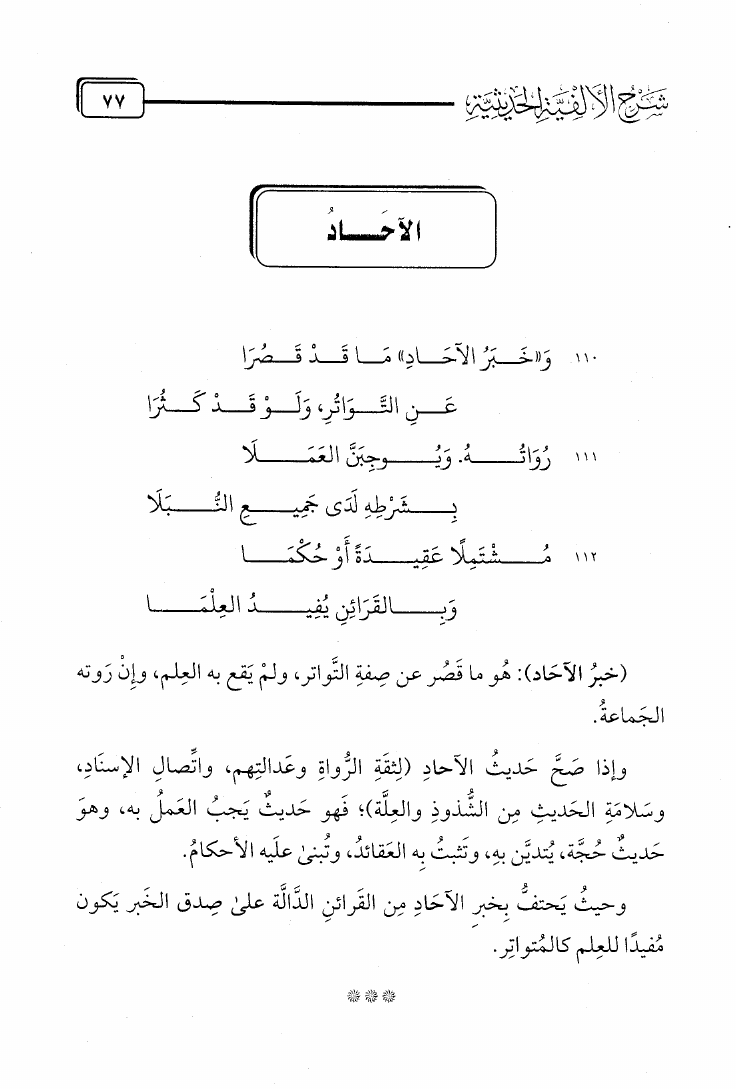 شَرْحُ الأَلْفِيَّةِ الحَدِيثِيَّةِ
٧٧
الآحَـــادُ
١١٠ وَ«خَـبَرُ الآحَـادِ» مَـا قَـدْ قَـصُرَا
عَـنِ التَّـوَاتُرِ، وَلَـوْ قَـدْ كَـثُرَا
١١١ رُوَاتُـهُ. وَيُـوجِبَنَّ العَمَـلَا
بِـشَرْطِهِ لَدَى جَمِيـعِ النُّـبَلَا
١١٢ مُـشْتَمِلًا عَقِيـدَةً أَوْ حُكْمَـا
وَبِـالقَرَائِنِ يُفِيـدُ العِلْمَـا
(خبرُ الآحَاد): هُو ما قَصُر عن صِفةِ التَّواتر، ولمْ يَقع به العِلم، وإنْ رَوته
الجَماعةُ.
وإذا صَحَّ حَديثُ الآحادِ (لِثقَةِ الرُّواةِ وعَدالتِهم، واتِّصالِ الإسنَادِ،
وسَلامَةِ الحَديثِ مِن الشُّذوذِ والعِلَّة)؛ فهو حَديثٌ يَجبُ العَملُ به، وهوَ
حَديثٌ حُجَّة، يُتديَّن بهِ، وتَثبتُ بِه العَقائدُ، وتُبنىٰ علَيه الأحكامُ.
وحيثُ يَحتفُّ بِخبرِ الآحَادِ مِن القَرائنِ الدَّالَّة علىٰ صِدق الخَبر يَكون
مُفيدًا للعِلم كالمُتواتِر.
***